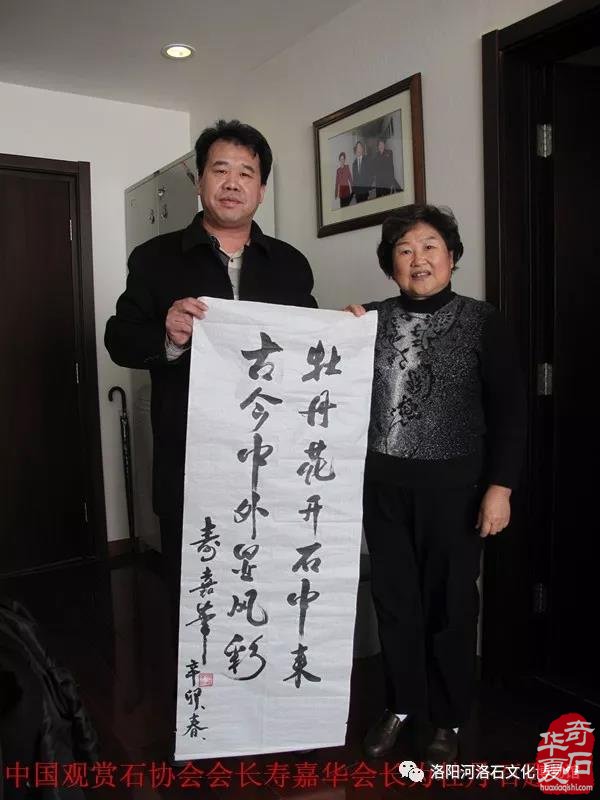 牡丹花开石中来
古今中外呈风彩
寿嘉华
辛卯春
中国观赏石协会会长寿嘉华会长为牡丹石
洛阳河洛石文化
华夏奇石
huaxiaqishi.com